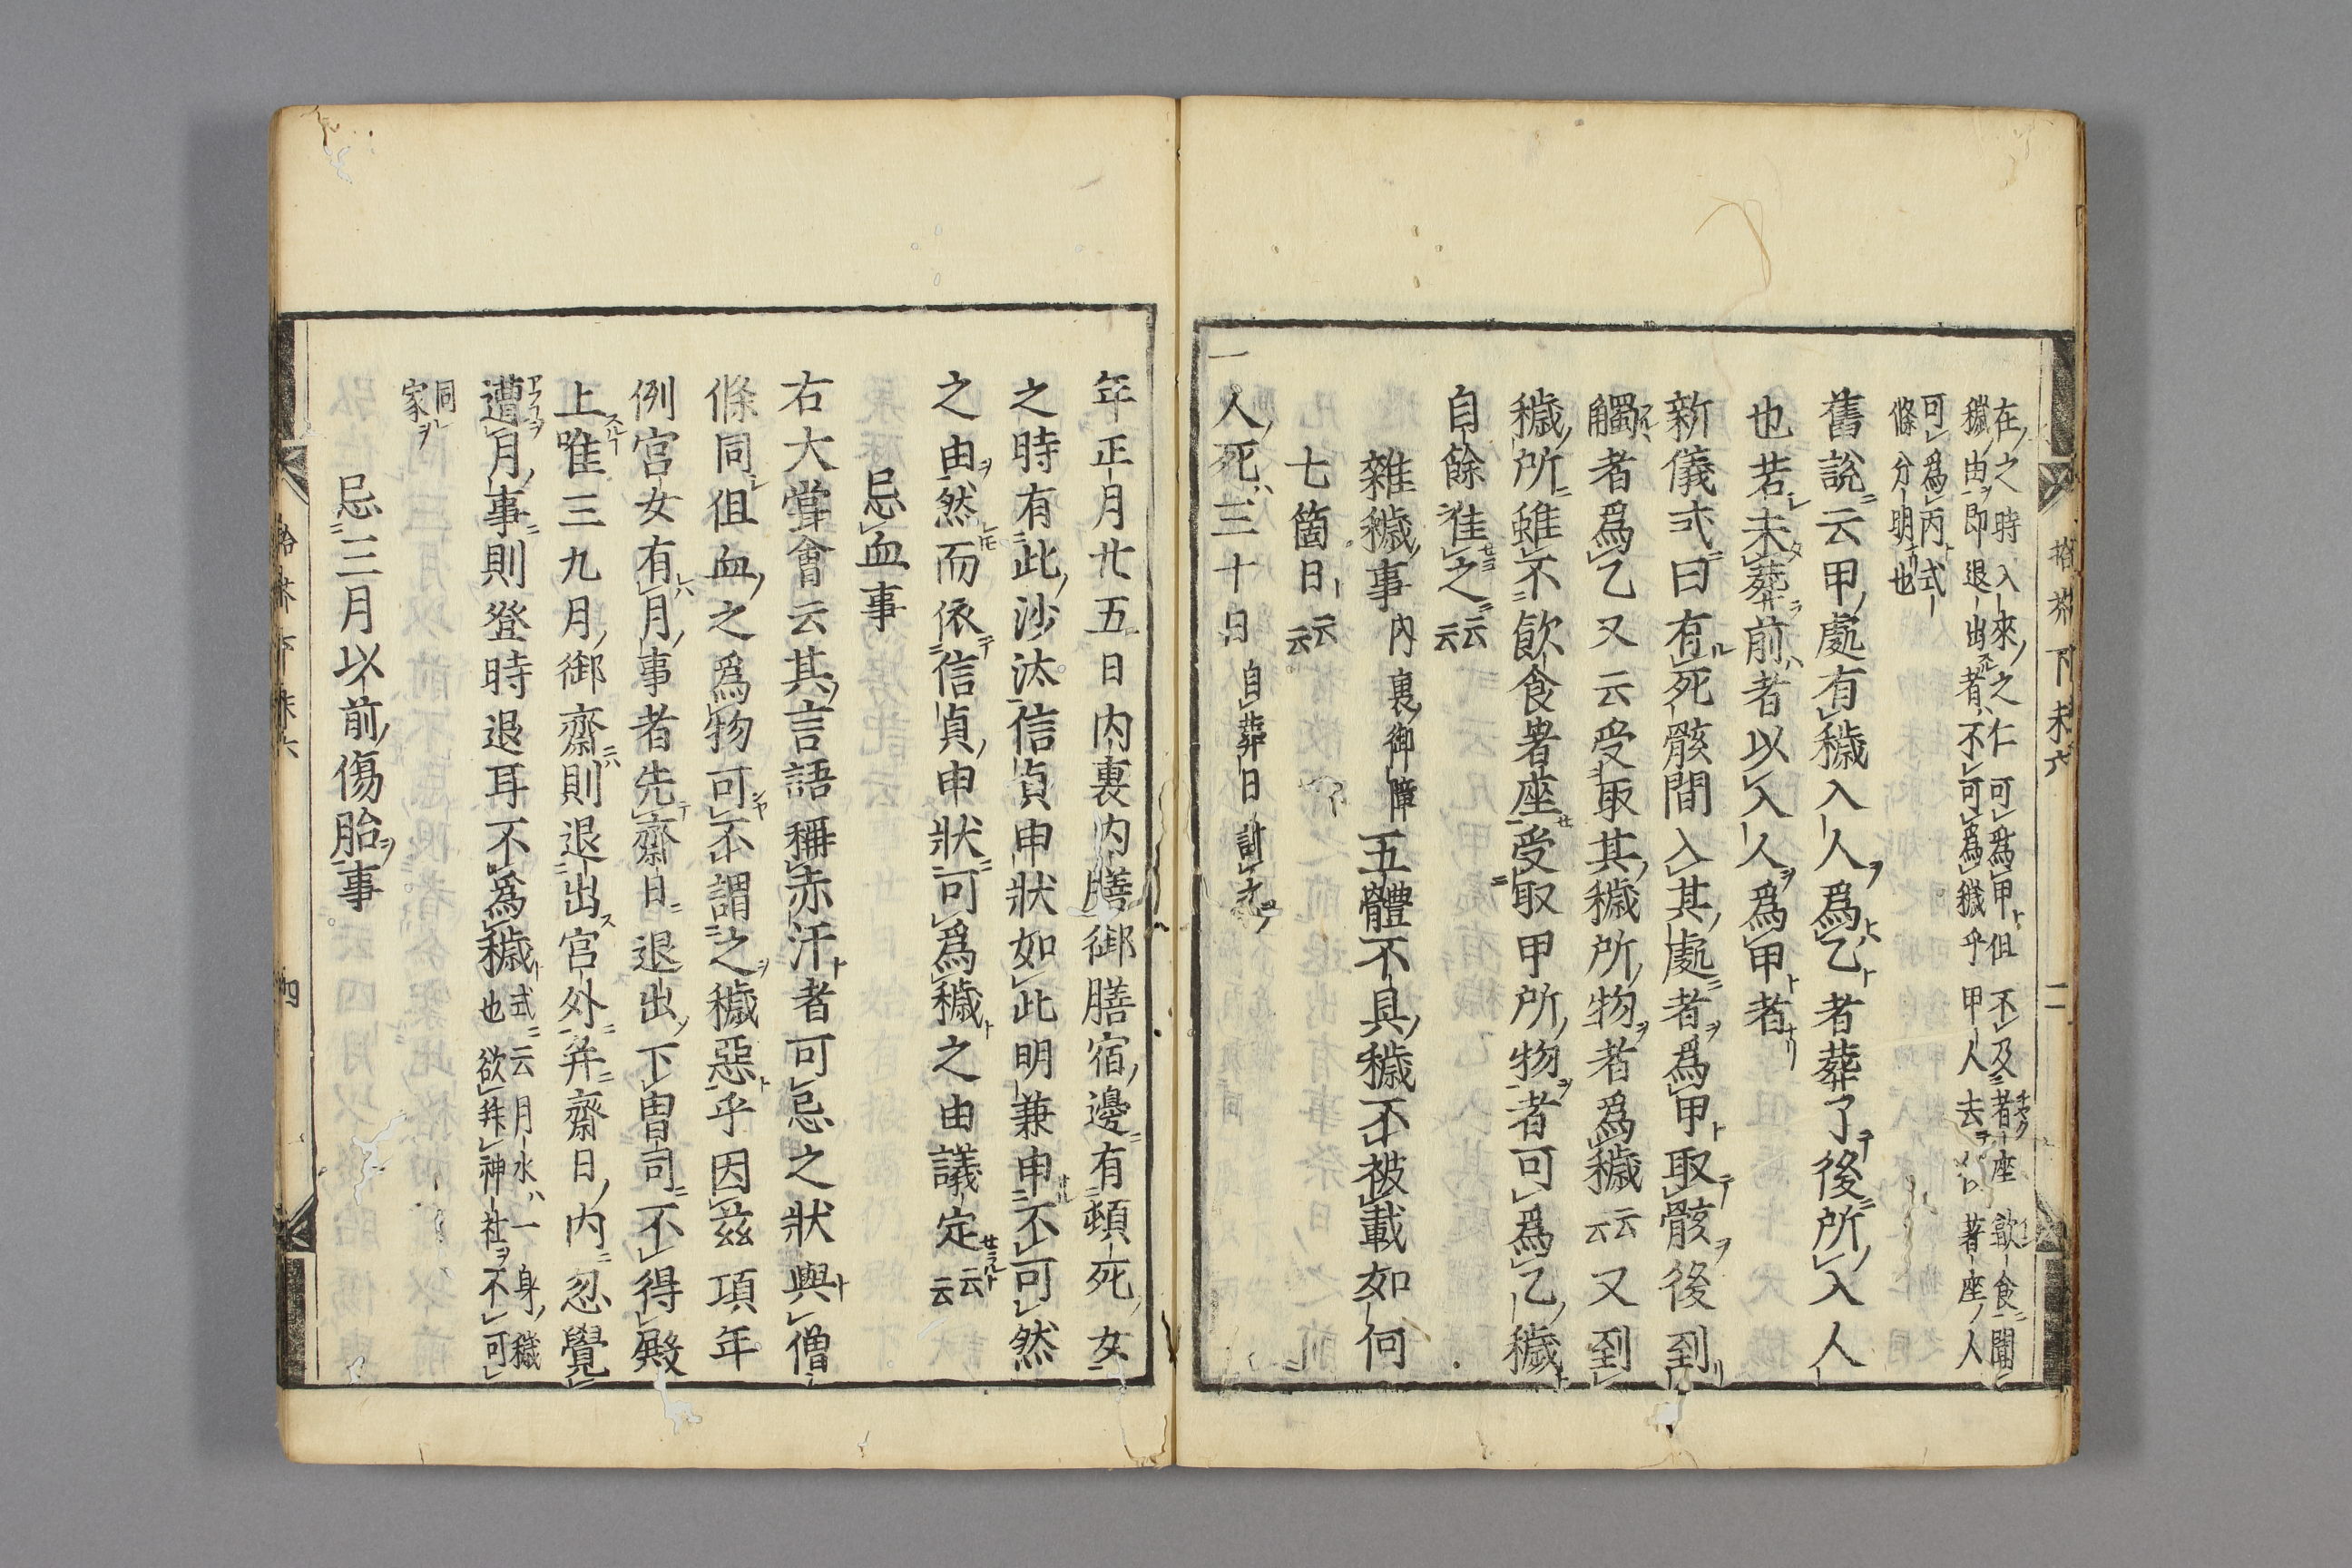 在之時入來之仁可爲甲但不及著座飮食聞
穢由即退出者不可爲穢乎甲人去著座人
可爲丙式
條分明也
舊説云甲處有穢入人爲乙者葬了後所入人
也若未葬前者以入人爲甲者
新儀式曰有死骸間入其處者爲甲取骸後到
觸者爲乙又云受取其穢所物者爲穢云云又到
穢所雖不飮食著座受取甲所物者可爲乙穢
自餘准之云云
雜穢事内裏御障五體不具穢不被載如何
七箇日云云
一人死三十日自葬日計之
拾芥下末六 二
年正月廿五日内裏内膳御膳宿邊有頓死女
之時有此沙汰信貞申状如此明兼申不可然
之由然而依信貞申状可爲穢之由議定云云
忌血事
右大甞會云其言語稱赤汗者可忌之状與僧
條同但血之爲物可不謂之穢惡乎因茲項年
例宮女有月事者先齋日退出下曹司不得殿
上唯三九月御齋則退出宮外并齋日内忽覺
遭月事則登時退耳不爲穢也式云月水一身穢
欲拜神社不可
同
家
忌三月以前傷胎事
拾芥下末六 四